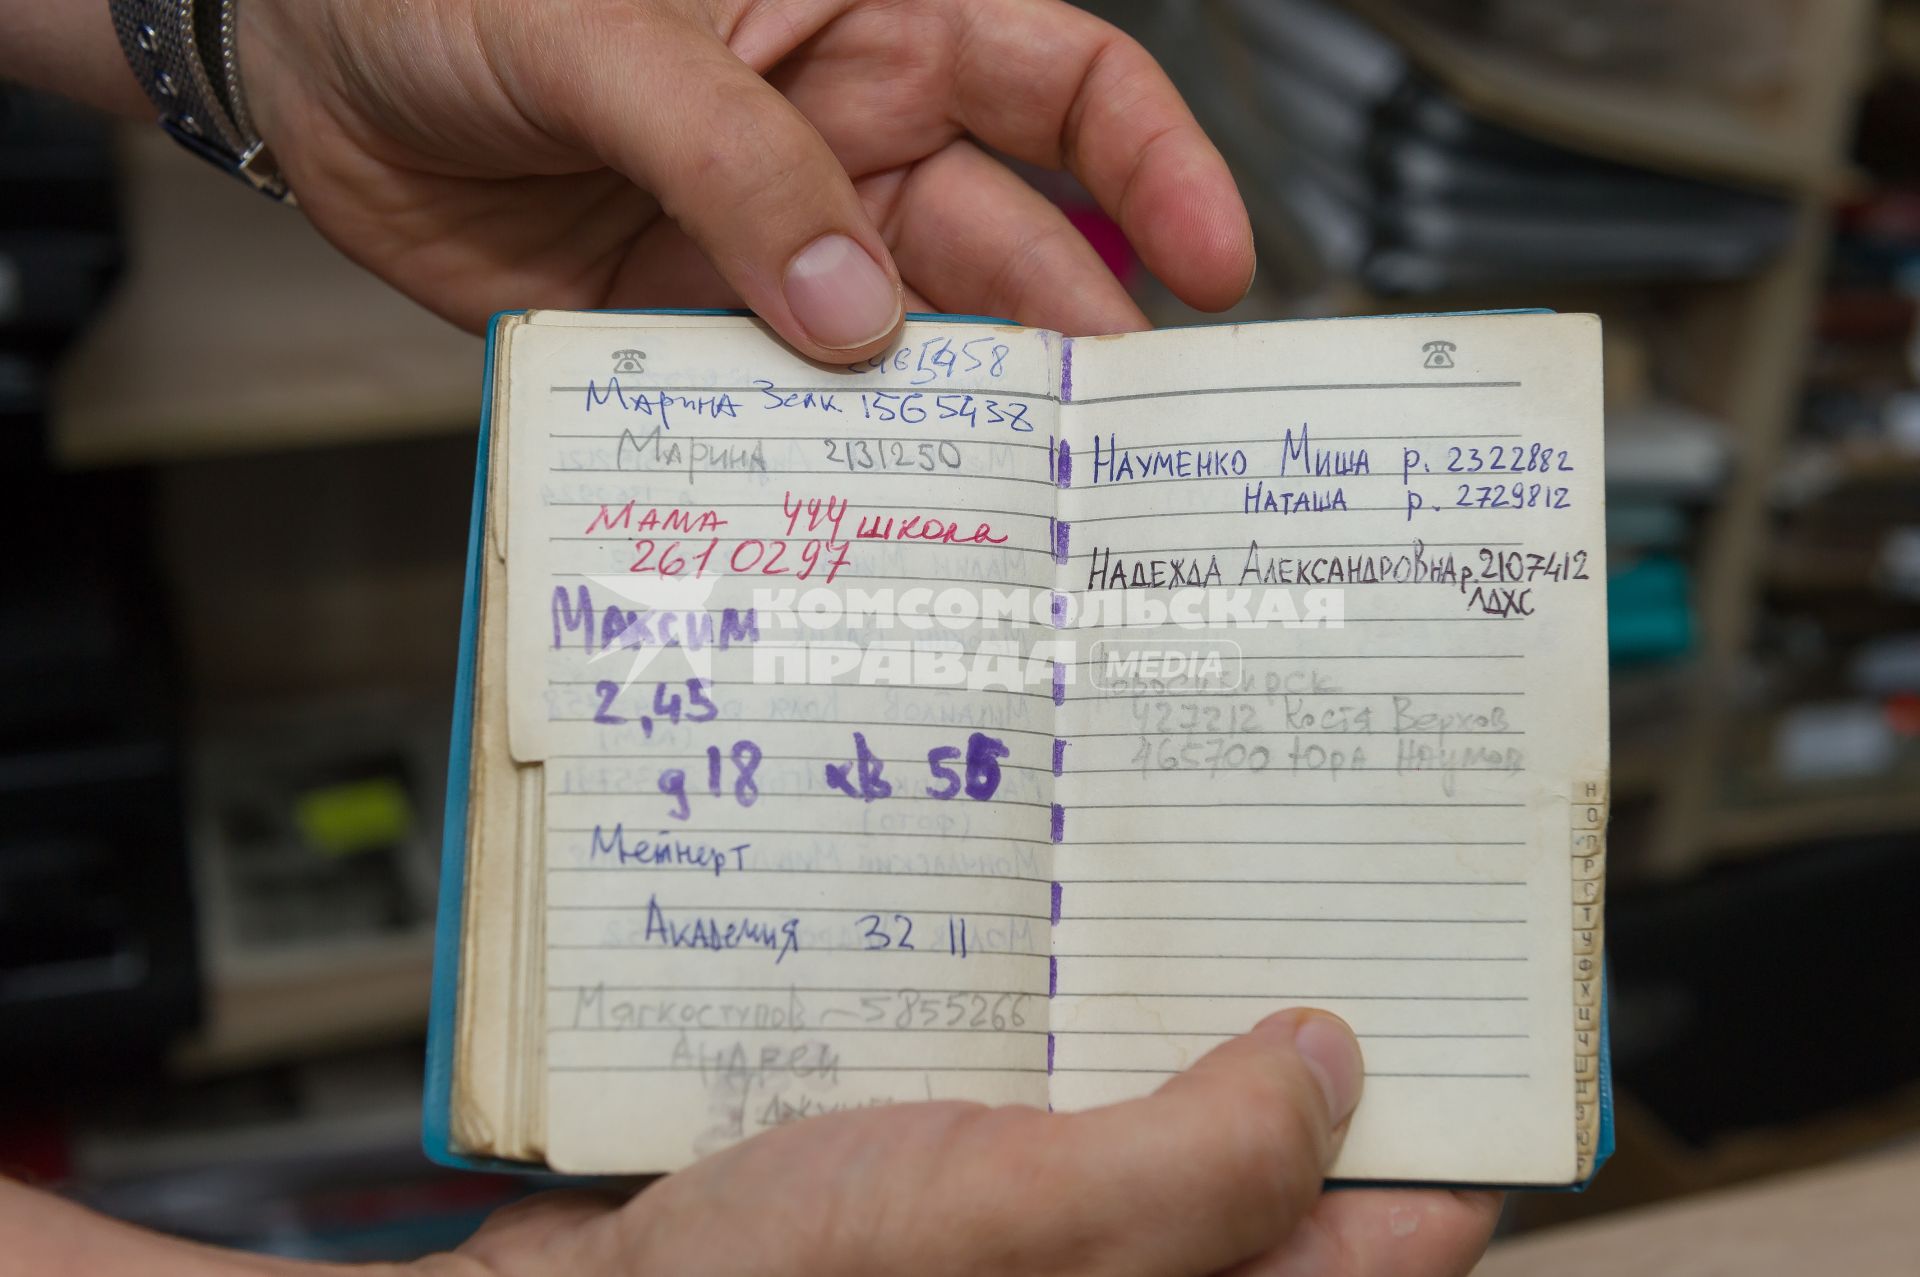 5458
Марина Зелк 1565438
Марина 2131250
Мама 444 школа
261 0297
Максим
2,45
д 18 кв 55
Мейнерт
Академия 32 11
Мягкоступов – 5855266
Андрей
Науменко Миша р. 2322882
Наташа р. 2729812
Надежда Александровна р. 2107412
ЛДХС
Новосибирск
427212 Костя Верхов
465700 Юра Наумов
Н
О
П
Р
С
Т
У
Ф
Х
Ц
Ч
Ш
Щ
Э
Ю
КОМСОМОЛЬСКАЯ
ПРАВДА MEDIA